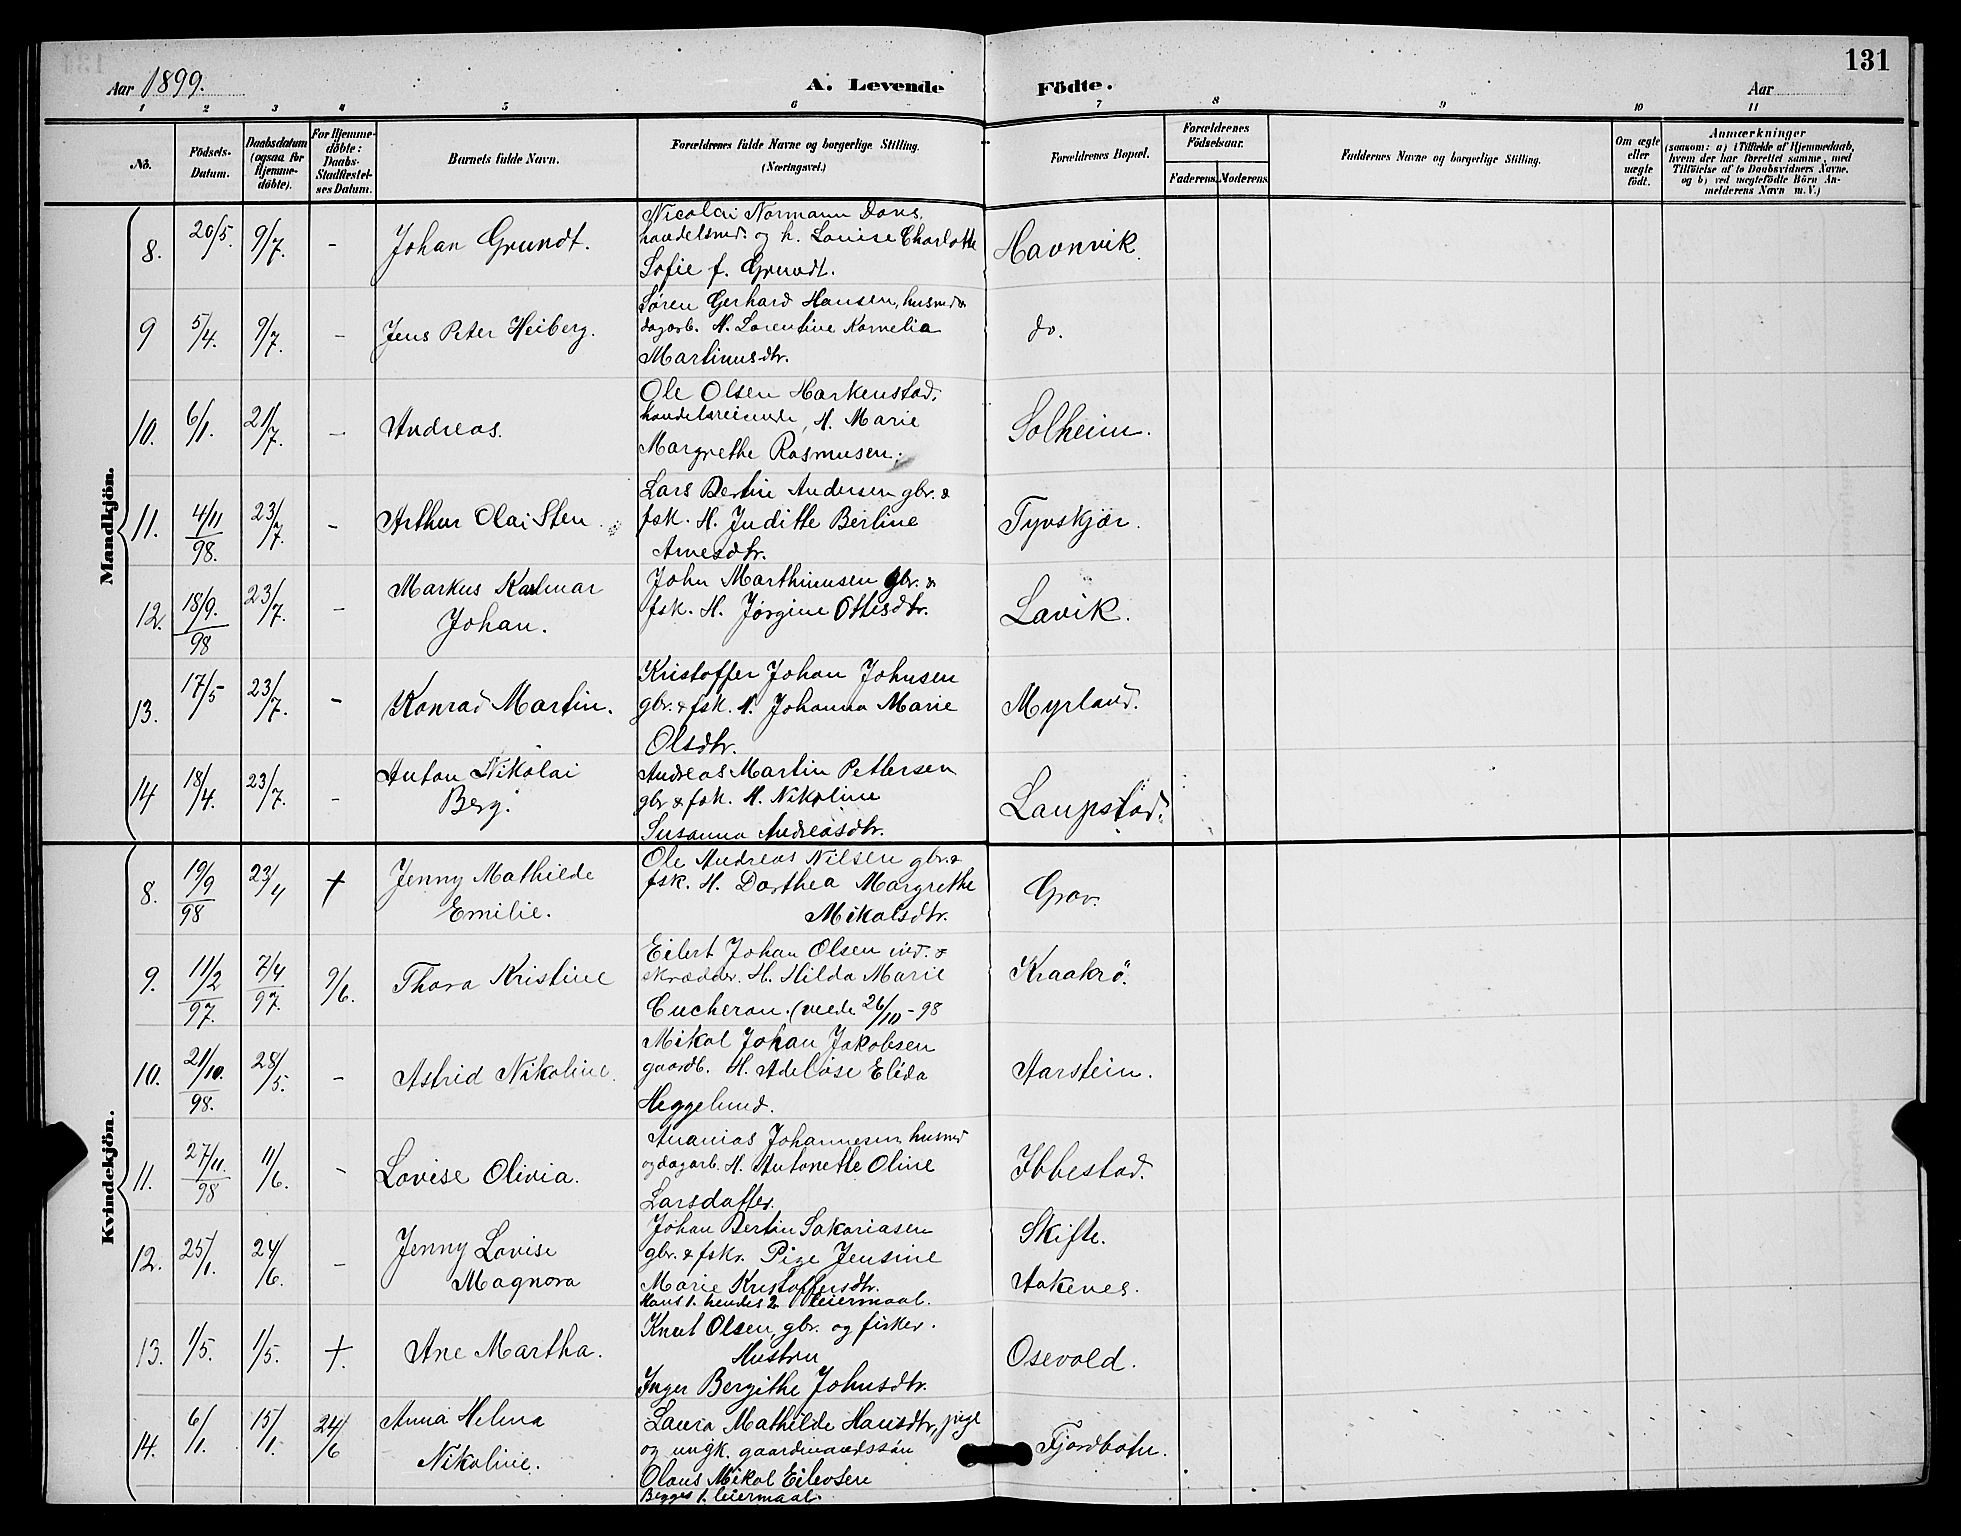 131
Aar 1899.
A. Levende Födte.
Aar
1 2 3 4 5 6 7 8 9 10 11
No.
Födsels-Datum.
Daabsdatum (ogsaa for Hjemmedöbte).
For Hjemmedöbte: Daabs-Stadfæstelses Datum.
Barnets fulde Navn.
Forældrenes fulde Navne og borgerlige Stilling. (Næringsvei.)
Forældrenes Bopæl.
Forældrenes Födselsaar.
Faderens. Moderens.
Faddernes Navne og borgerlige Stilling.
Om ægte eller uægte födt.
Anmærkninger
(saasom: a) i Tilfælde af Hjemmedaab, hvem der har forrettet samme, med Tilföielse af to Daabsvidners Navne. og b) ved uægtefödte Börn Anmelderens Navn m. V.)
Mandkjön.
8. 20/5. 9/7. - Johan Grundt.
Nicolai Normann Dons,
handelsmd. og h. Louise Charlotte
Sofie f. Grundt.
Havnvik.
9 5/4. 9/7. - Jens Peter Heiberg.
Søren Gerhard Hansen, husmd &
dagarb. H. Lorentine Kornelia
Martinusdtr.
do.
10. 6/1. 21/7. - Andreas.
Ole Olsen Harkenstad,
handelsreisende, H. Marie
Margrethe Rasmusen.
Solheim.
11. 4/11 98. 23/7. - Arthur Olai Sten
Lars Bertin Andersen gbr. &
fsk. H. Juditte Berline
Arnesdtr.
Tyvskjær.
12. 18/9. 98 23/7. - Markus Kalmar
Johan.
John Marthinusen gbr. &
fsk. H. Jørgine Ottesdtr.
Lavik.
13. 17/5 23/7. - Konrad Martin.
Kristoffer Johan Johnsen
gbr. & fsk. H. Johanna Marie
Olsdtr.
Myrland.
14 18/4. 23/7. - Anton Nikolai
Berg.
Andreas Martin Pettersen
gbr & fsk. H. Nikoline
Susanna Andreasdtr.
Laupstad.
Kvindekjön.
8. 19/9 98 23/4 † Jenny Mathilde
Emilie.
Ole Andreas Nilsen gbr. &
fsk. H. Dorthea Margrethe
Mikalsdtr.
Grov.
9. 11/2 97. 7/4 97. 9/6. Thora Kristine
Eilert Johan Olsen ind. &
skrædder. H. Hilda Marie
Cucheron. (viede 26/10 - 98
Kraakrö.
10. 21/10. 98. 28/5. - Astrid Nikoline.
Mikal Johan Jakobsen
gaardb. H. Adelose Elida
Heggelund.
Aarstein.
11. 27/11. 98 11/6. - Lovise Olivia.
Ananias Johannesen husmd
og dagarb. H. Antonette Oline
Larsdatter.
Ibbestad.
12. 25/1. 24/6. - Jenny Lovise
Magnora
Johan Bertin Sakariasen
gbr. & fskr. Pige Jensine
Marie Kristoffersdtr.
Hans 1. hendes 2 leiermaal.
Skifte.
Aakenes.
13. 1/5. 1/5. †. Ane Martha.
Knut Olsen, gbr. og fisker.
Hustru
Inger Bergithe Johnsdtr.
Osevold.
14. 6/1. 15/1. 24/6 Anna Helma
Nikoline.
Laura Mathilde Hansdtr, pige
og ungk. gaardmandssøn
Olaus Mikal Eilevsen
Begges 1. leiermaal.
Fjordbotn.